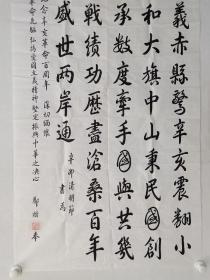 義赤縣驚辛亥震翻小
和大旗中山秉民國創
承數度牽手國與共幾
戰績功歷盡滄桑百年
盛世兩岸通
辛卯清明節
書為
念辛亥革命百周年 深切緬懷
革命先驅弘揚愛國主義精神堅定振興中華之決心
鄭
奉